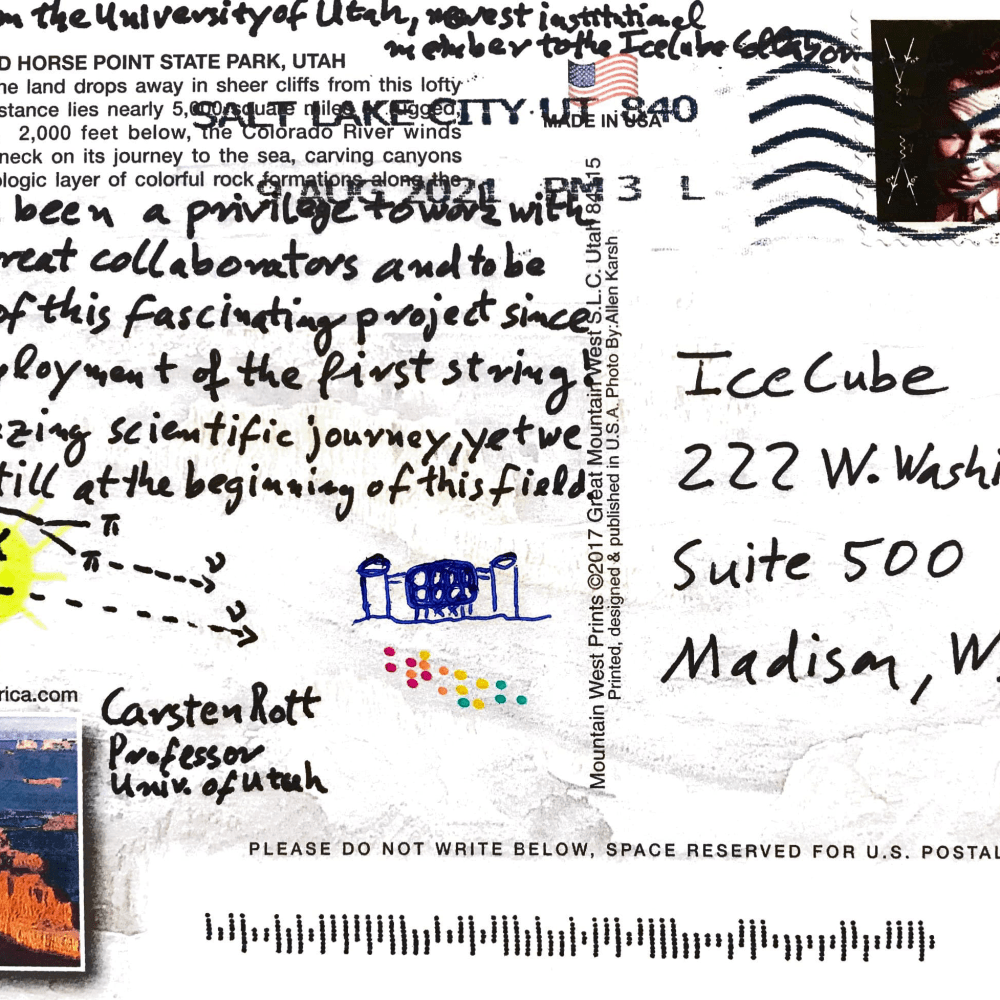 m the University of Utah, newest institutional
member to the IceCube
D HORSE POINT STATE PARK, UTAH
he land drops away in sheer cliffs from this lofty
stance lies nearly 5,000 square miles of rugged,
2,000 feet below, the Colorado River winds
neck on its journey to the sea, carving canyons
ologic layer of colorful rock formations along the
SALT LAKE CITY UT 840
MADE IN USA
9 AUG 2024 PM 3 L
been a privilege to work with
reat collaborators and to be
of this fascinating project since
ployment of the first string!
zing scientific journey, yet we
till at the beginning of this field.
π
π ν
ν
rica.com
Carsten Rott
Professor
Univ. of Utah
Mountain West Prints ©2017 Great Mountain West S.L.C. Utah 84115
Printed, designed & published in U.S.A. Photo By: Allen Karsh
IceCube
222 W. Washi
Suite 500
Madison, W
PLEASE DO NOT WRITE BELOW, SPACE RESERVED FOR U.S. POSTAL